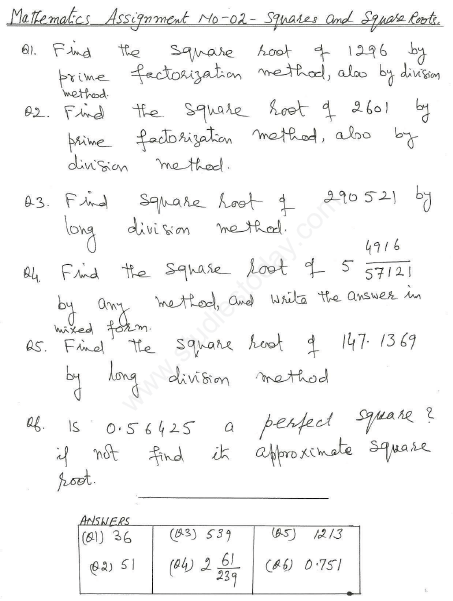 Mathematics Assignment No-02 - Squares and Square Roots.
Q1. Find the square root of 1296 by
prime factorization method, also by division
method.
Q2. Find the square root of 2601 by
prime factorization method, also by
division method.
Q3. Find square root of 290521 by
long division method.
Q4. Find the square root of 5 4916/57121
by any method, and write the answer in
mixed form.
Q5. Find the square root of 147.1369
by long division method
Q6. Is 0.56425 a perfect square?
if not find its approximate square
root.
ANSWERS
(Q1) 36 (Q3) 539 (Q5) 1213
(Q2) 51 (Q4) 2 61/239 (Q6) 0.751
www.studiestoday.com